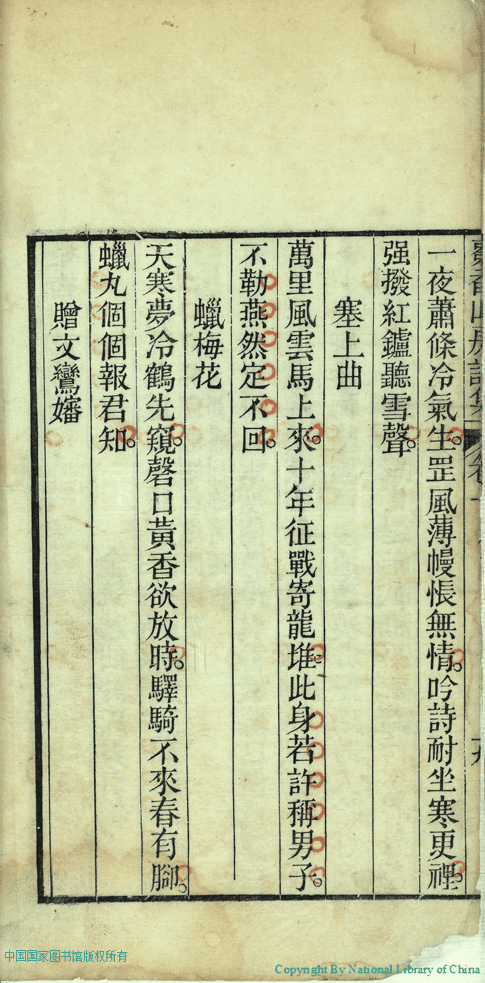 一夜蕭條冷氣生。罡風薄幔悵無情。吟詩耐坐寒更裡。
强撥紅鑪聽雪聲。
塞上曲
萬里風雲馬上來。十年征戰寄龍堆。此身若許稱男子。
不勒燕然定不回。
蠟梅花
天寒夢冷鶴先窺。磬口黃香欲放時。驛騎不來春有腳。
蠟丸個個報君知。
贈文鸞嬸
中国国家图书馆版权所有
Copyright By National Library of China